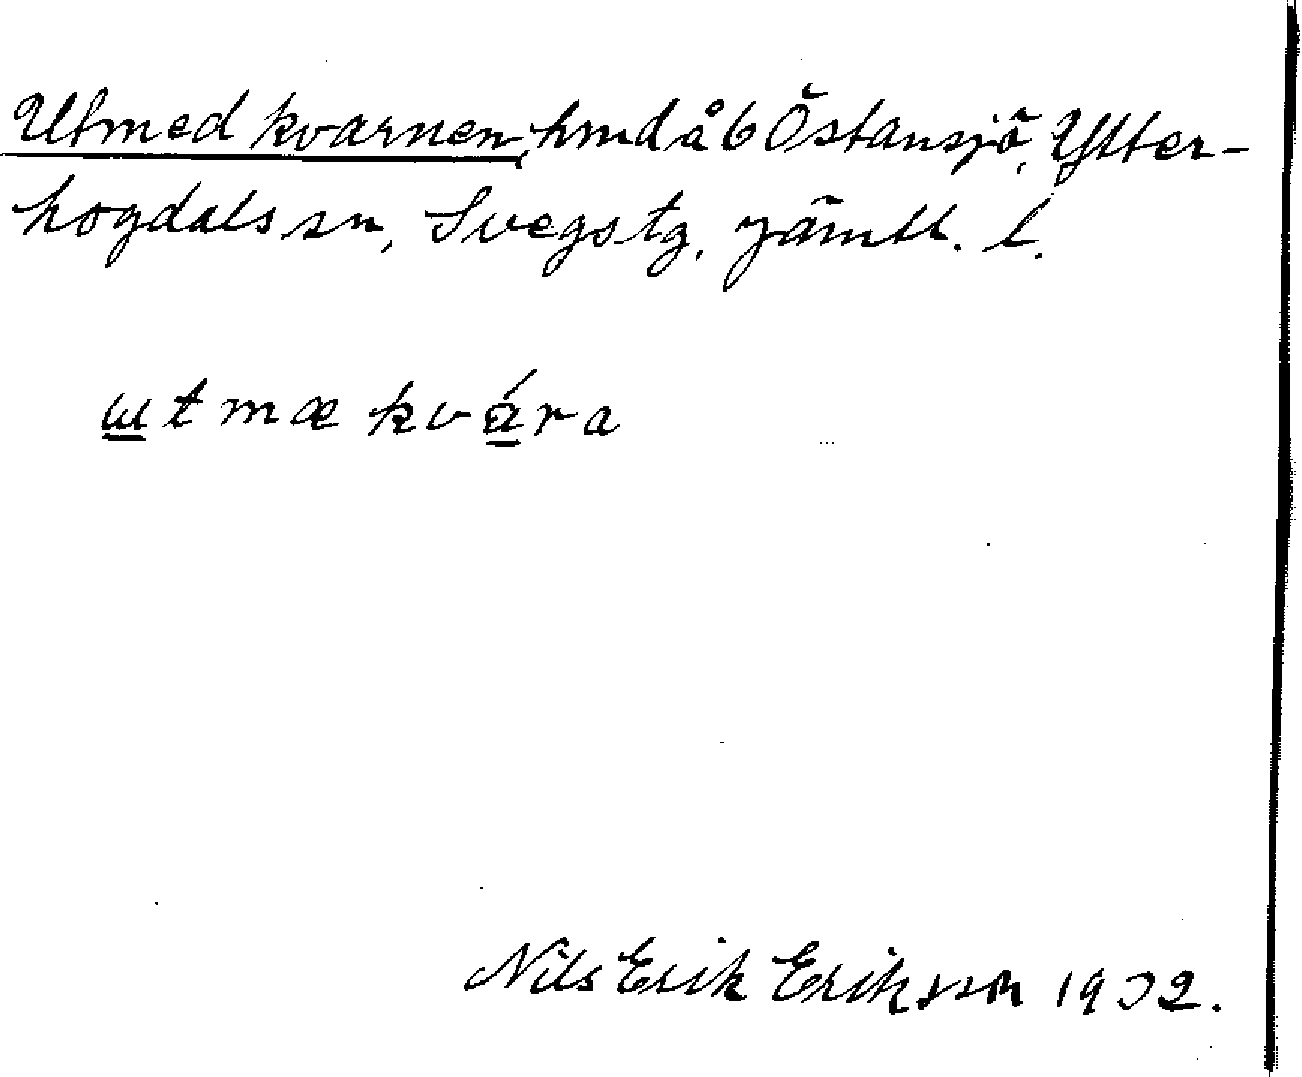 Utmed kvarnen, hmd å 6 Östansjö, Ytter-
hogdals sn, Svegs tg, Jämtl. l.
ɯtmækvára
Nils Erik Eriksson 1932.